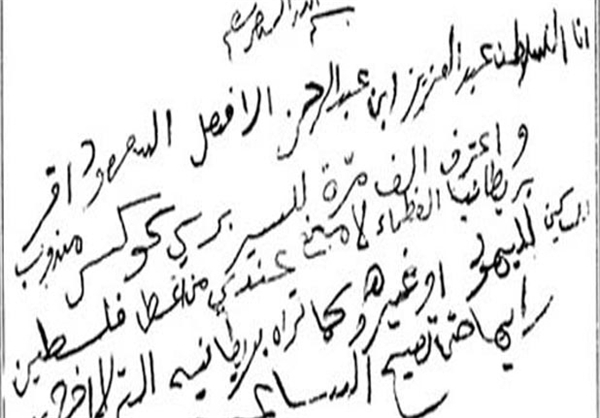 بسم الله الرحمن الرحيم
انا السلطان عبد العزيز ابن عبد الرحمن ال الفيصل السعود اقر
و اعترف الف مرّة للسر برسي كوكس مندوب
بريطانيا العظماء لا مانع عندي من اعطي فلسطين
للمساكين لليهود او غيرهم وكما تراه بريطانيه التي لا اخرج
رايها حتى تصيح الساعه